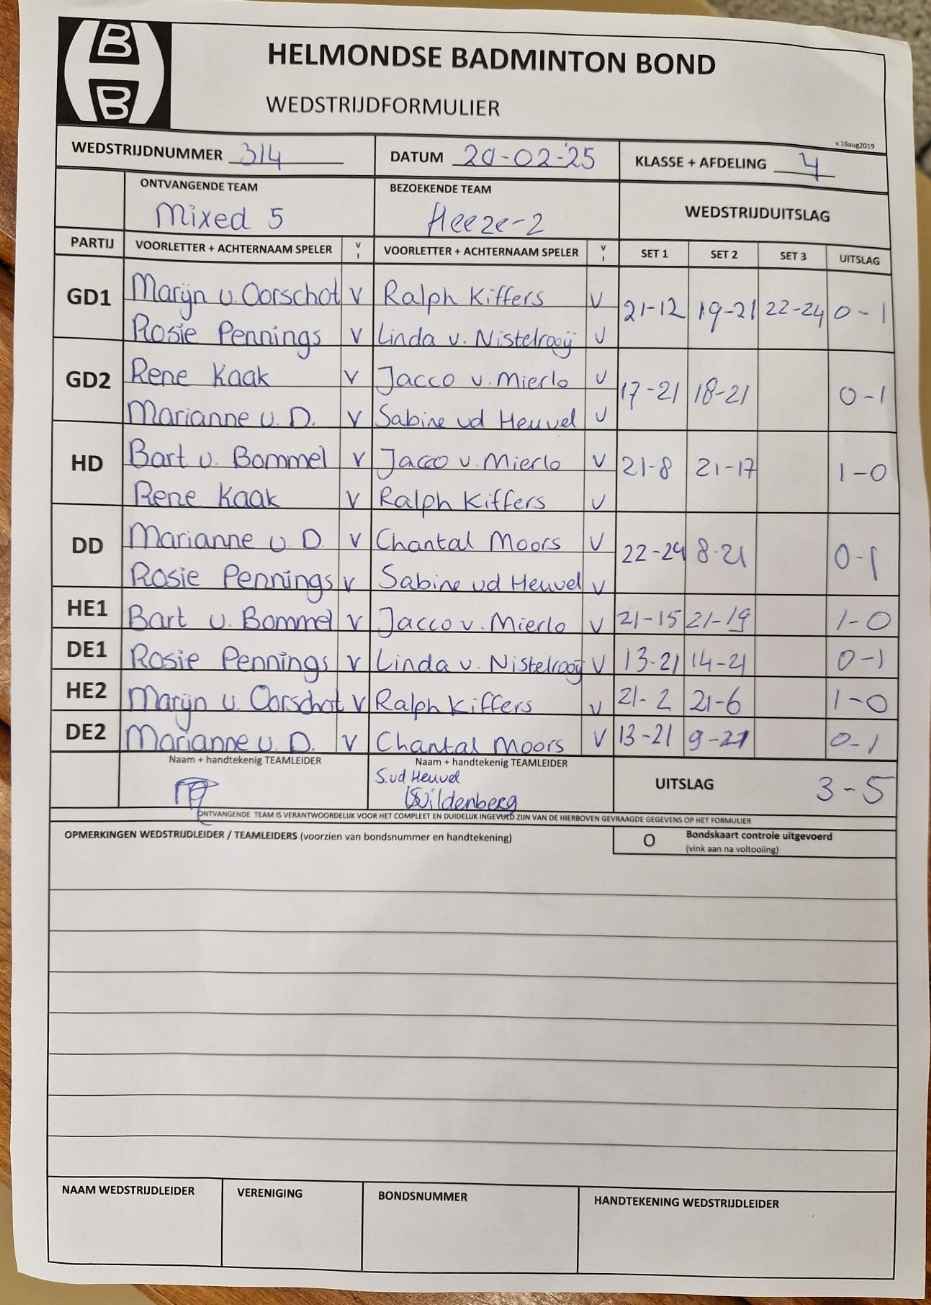 B
B
HELMONDSE BADMINTON BOND
WEDSTRIJDFORMULIER
v.18aug2019
WEDSTRIJDNUMMER 314 DATUM 20-02-25 KLASSE + AFDELING 4
ONTVANGENDE TEAM BEZOEKENDE TEAM WEDSTRIJDUITSLAG
Mixed 5 Heeze-2
PARTIJ VOORLETTER + ACHTERNAAM SPELER V I VOORLETTER + ACHTERNAAM SPELER V I SET 1 SET 2 SET 3 UITSLAG
GD1 Marijn v. Oorschot V Ralph Kiffers V 21-12 19-21 22-24 0-1
Rosie Pennings V Linda v. Nistelrooij V
GD2 Rene Kaak V Jacco v. Mierlo V 17-21 18-21 0-1
Marianne v. D. V Sabine vd Heuvel V
HD Bart v. Bommel V Jacco v. Mierlo V 21-8 21-17 1-0
Rene Kaak V Ralph Kiffers V
DD Marianne v D. V Chantal Moors V 22-24 8-21 0-1
Rosie Pennings V Sabine vd Heuvel V
HE1 Bart v. Bommel V Jacco v. Mierlo V 21-15 21-19 1-0
DE1 Rosie Pennings V Linda v. Nistelrooij V 13-21 14-21 0-1
HE2 Marijn v. Oorschot V Ralph Kiffers V 21-2 21-6 1-0
DE2 Marianne v. D. V Chantal Moors V 13-21 9-21 0-1
Naam + handtekenig TEAMLEIDER Naam + handtekenig TEAMLEIDER UITSLAG 3-5
S.vd Heuvel
ONTVANGENDE TEAM IS VERANTWOORDELIJK VOOR HET COMPLEET EN DUIDELIJK INGEVULD ZIJN VAN DE HIERBOVEN GEVRAAGDE GEGEVENS OP HET FORMULIER
OPMERKINGEN WEDSTRIJDLEIDER / TEAMLEIDERS (voorzien van bondsnummer en handtekening) O Bondskaart controle uitgevoerd
(vink aan na voltooiing)
NAAM WEDSTRIJDLEIDER VERENIGING BONDSNUMMER HANDTEKENING WEDSTRIJDLEIDER